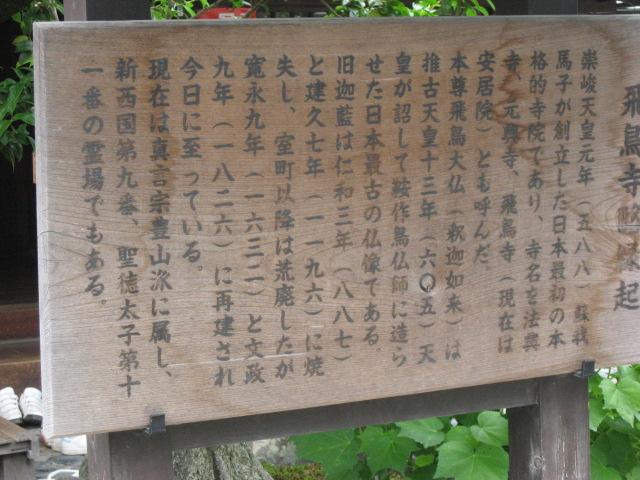 飛鳥寺略縁起
崇峻天皇元年（五八八）蘇我
馬子が創立した日本最初の本
格的寺院であり、寺名を法興
寺、元興寺、飛鳥寺（現在は
安居院）とも呼んだ。
本尊飛鳥大仏（釈迦如来）は
推古天皇十三年（六〇五）天
皇が詔して鞍作鳥仏師に造ら
せた日本最古の仏像である。
旧伽藍は仁和三年（八八七）
と建久七年（一一九六）に焼
失し、室町以降は荒廃したが
寛永九年（一六三二）と文政
九年（一八二六）に再建され
今日に至っている。
現在は真言宗豊山派に属し、
新西国第九番、聖徳太子第十
一番の霊場でもある。